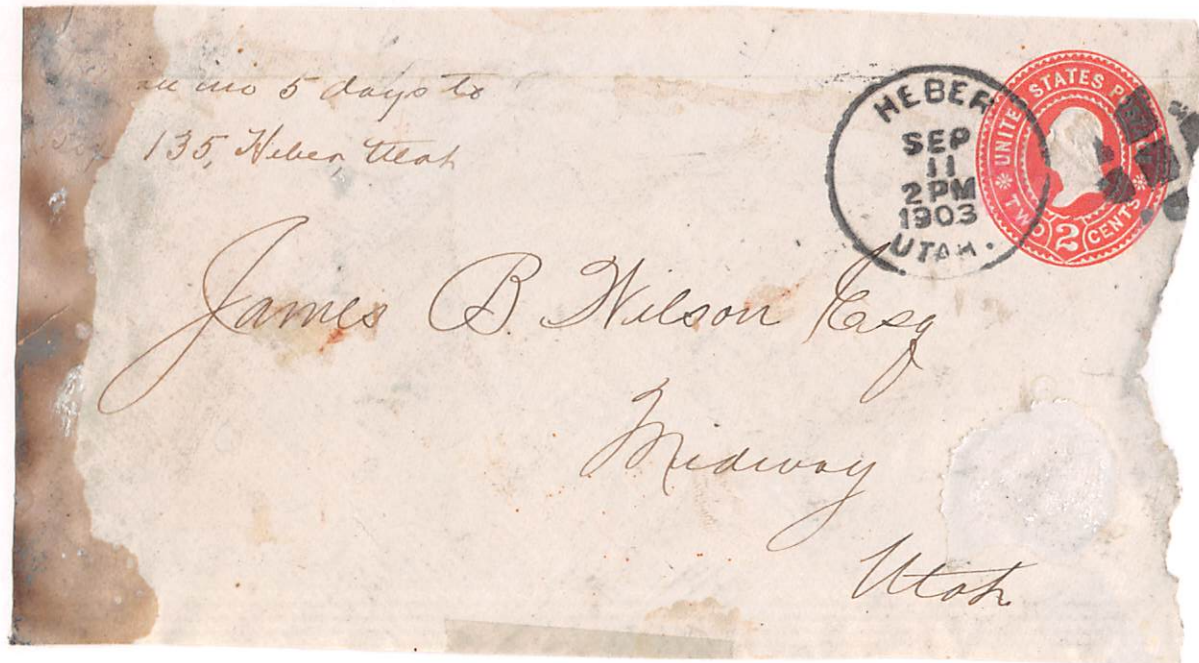 in 5 days to
135, Heber, Utah
HEBER
SEP
11
2 PM
1903
UTAH.
UNITED STATES
TWO 2 CENTS
James B. Wilson Esq
Midway
Utah